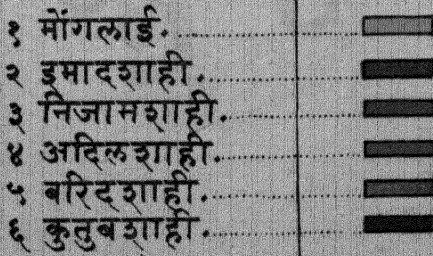 १ मोंगलाई.
२ इमादशाही.
३ निजामशाही.
४ अदिलशाही.
५ बरिदशाही.
६ कुतुबशाही.